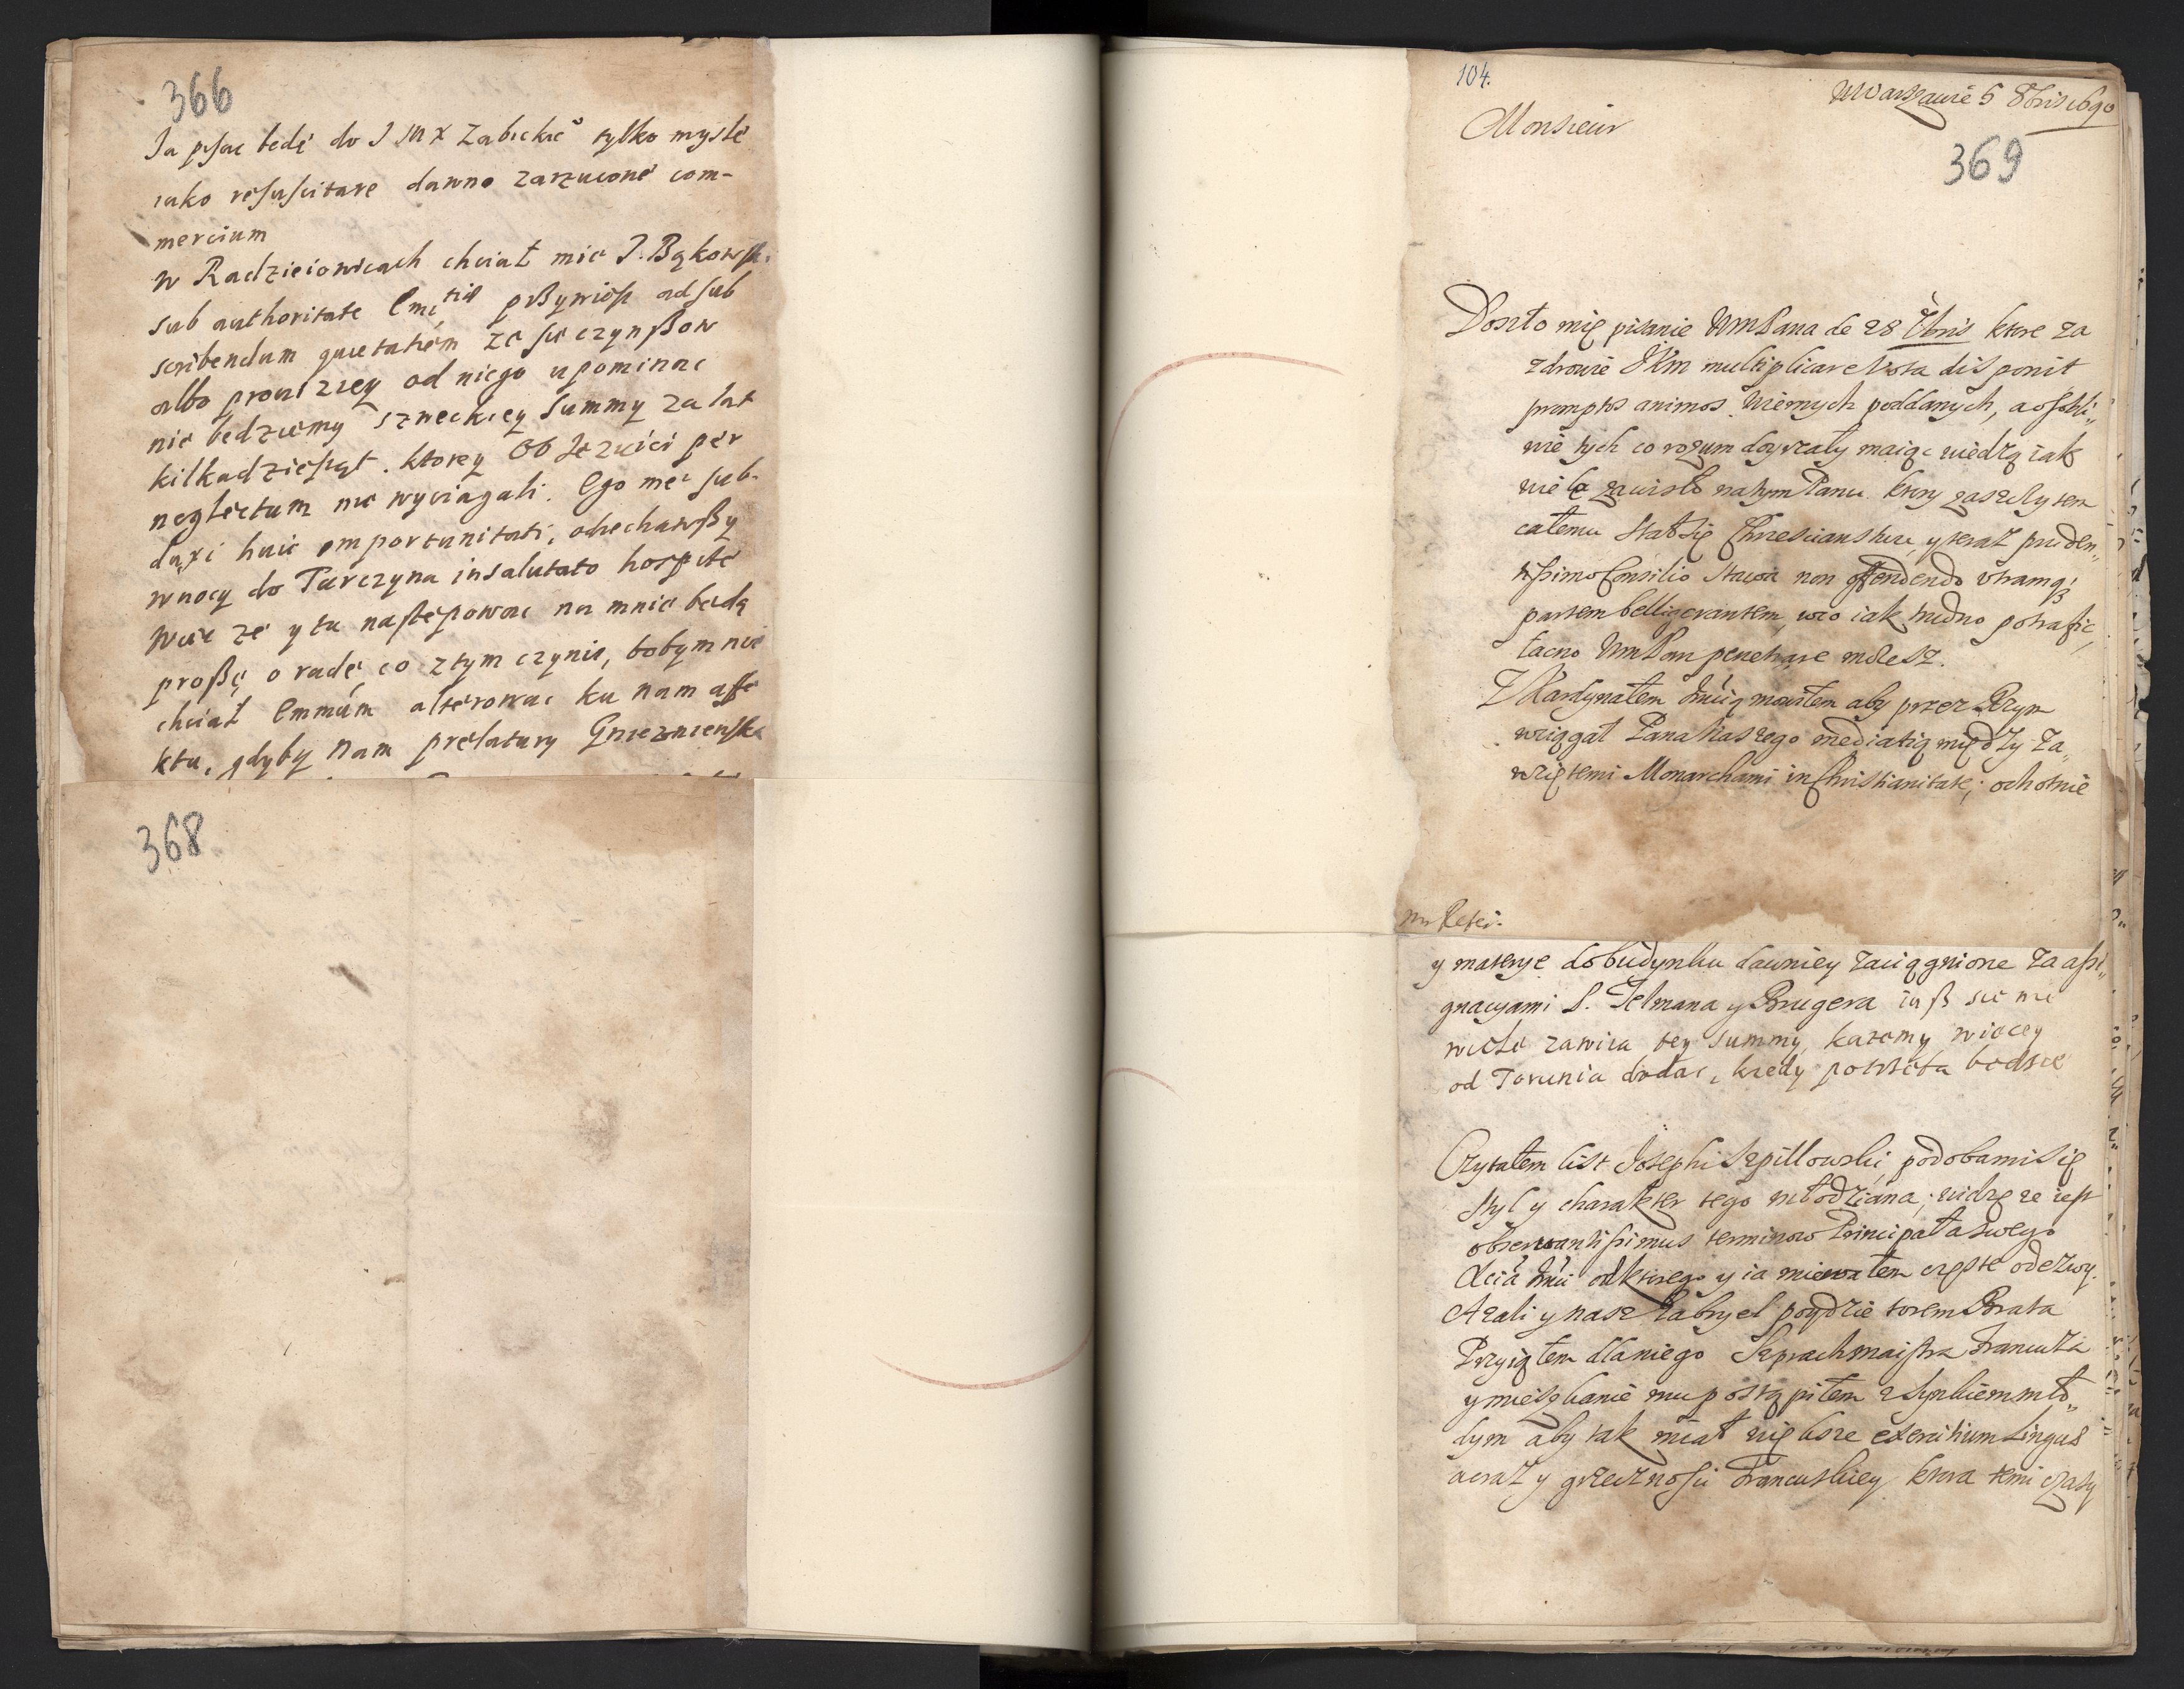 366
Ja pisac bede do J M X Zabickie tylko mysle
iako resuscitare dawno zarzucone com-
mercium
w Radzieiowicach chciał mie J. Bąkowsk.
sub authoritate Emi przywiesc ad sub
scribendum quietatiem ze sie czynszow
albo prowiziey od niego upominac
nie bedziemy szweckiey summy za lat
kilkadziesiąt. ktorey OO Jezuici per
neglectum nie wyciągali. Ego me sub-
duxi huic importunitati, odiechawszy
w nocy do Turczyna insalutato hospite
Wiec ze y tu nastepowac na mnie bedą
proszę o rade co z tym czynic, bobym nie
chciał Emmum alterowac ku nam affe
ktu, gdyby nam prelatury Gnieznienska
368
104.
w Warszawie 5 8bris 1690
Monsieur
369
Doszło mię pisanie WmPana de 28 7bris ktore za
zdrowie JKm multiplicare vota disponit
promptos animos wiernych poddanych, a osobli„
wie tych co rozum doyrzały maiąc wiedzą iak
wiele zawisło na tym Panu ktory zaszczytem
całemu stał się Chrzescianstwu, y teraz pruden„
tissimo Consilio stawa non offendendo utramq;
partem belligerantem, wco iak trudno potrafic,
łacno WmPan penetrare możesz.
Z Kardynałem Jmcią mowiłem aby przez Rzym
wciągał Pana Naszego mediatią między za„
wziętemi Monarchami in Christianitate; ochotnie
y materye do budynku dawniey zaciągnione za assi„
gnacyami S. Telmana y Brugera iusz sie nie
wiele zawiera tey summy, każemy wiecey
od Torunia dodac, kiedy potrzeba bedzie
Czytałem list Josephi Szpillowski, podoba mi się
styl y charakter tego młodziana; widzę ze iest
observantissimus terminow Principała swego
Xcia Jmci od ktorego y ia miewałem częste odezwy.
Azali y nasz Gabryel poydzie torem Brata
Przyiąłem dla niego Szprachmaistra Francuza
y mieszkanie mu postąpiłem z synkiem mło„
dym aby tak miał większe exercitium Linguae
a oraz y grzecznosci Francuskiey ktora temi czasy